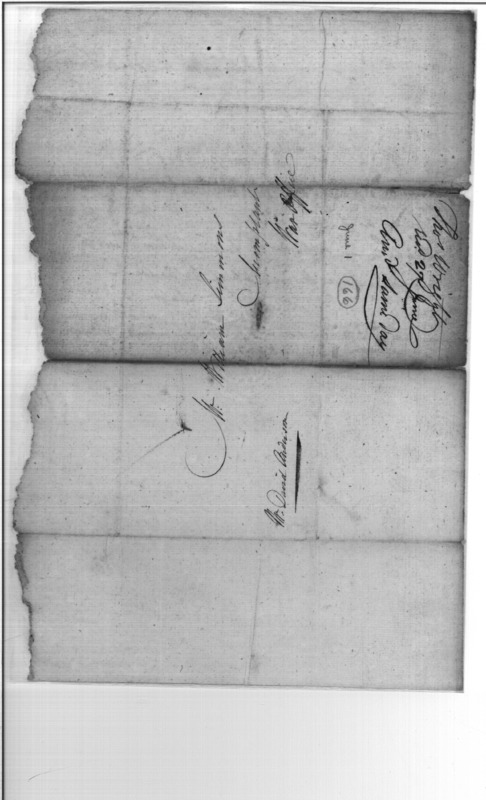 Mr. William Simmons
Accomptant
War Office
Mr. David Anderson
Thos Wright
No. 27
June 1
166